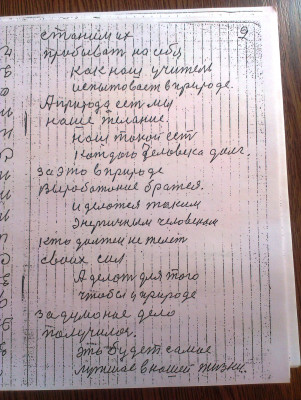 9
станим их
пробыват на себя
Как наш учитель
испытовает в природе.
А природа ест мы
наше желание.
Наш такой ест
Каждого человека долг.
За это в природе
Выработание братся.
и делатся таким
Энергичным человеком
Кто должен не телет
своих сил
А делат для того
чтобы у природе
задуманое дело
получилос.
эть будет самае
лутшае в нашей жизни.